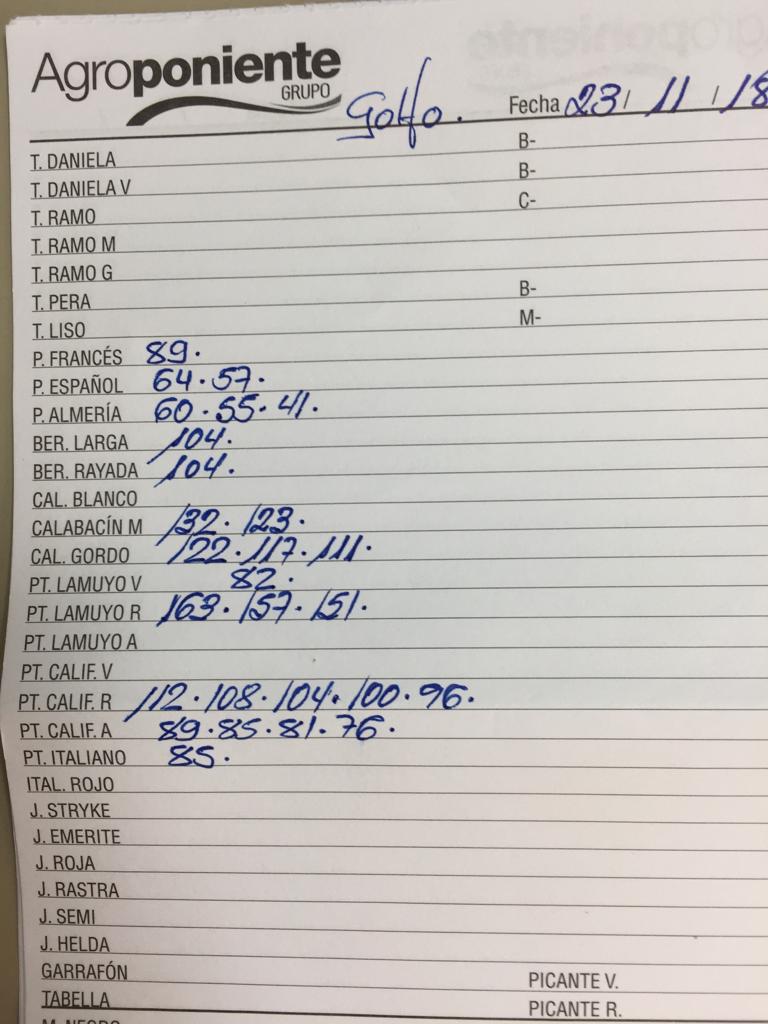 Agroponiente
GRUPO
Golfo. Fecha 23/ 11 / 18
T. DANIELA B-
T. DANIELA V B-
T. RAMO C-
T. RAMO M
T. RAMO G
T. PERA B-
T. LISO M-
P. FRANCÉS 89.
P. ESPAÑOL 64. 57.
P. ALMERÍA 60. 55. 41.
BER. LARGA 104.
BER. RAYADA 104.
CAL. BLANCO
CALABACÍN M 132. 123.
CAL. GORDO 122. 117. 111.
PT. LAMUYO V 82.
PT. LAMUYO R 163. 157. 151.
PT. LAMUYO A
PT. CALIF. V
PT. CALIF. R 112. 108. 104. 100. 96.
PT. CALIF. A 89. 85. 81. 76.
PT. ITALIANO 85.
ITAL. ROJO
J. STRYKE
J. EMERITE
J. ROJA
J. RASTRA
J. SEMI
J. HELDA
GARRAFÓN PICANTE V.
TABELLA PICANTE R.
M. NEGRO